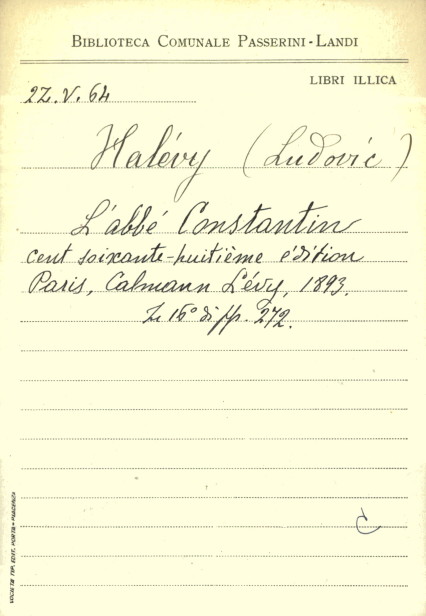 BIBLIOTECA COMUNALE PASSERINI-LANDI
LIBRI ILLICA
2Z.V.64
Halévy (Ludovic)
L'abbé Constantin
cent soixante-huitième édition
Paris, Calmann Lévy, 1893.
16° di pp. 272.
C